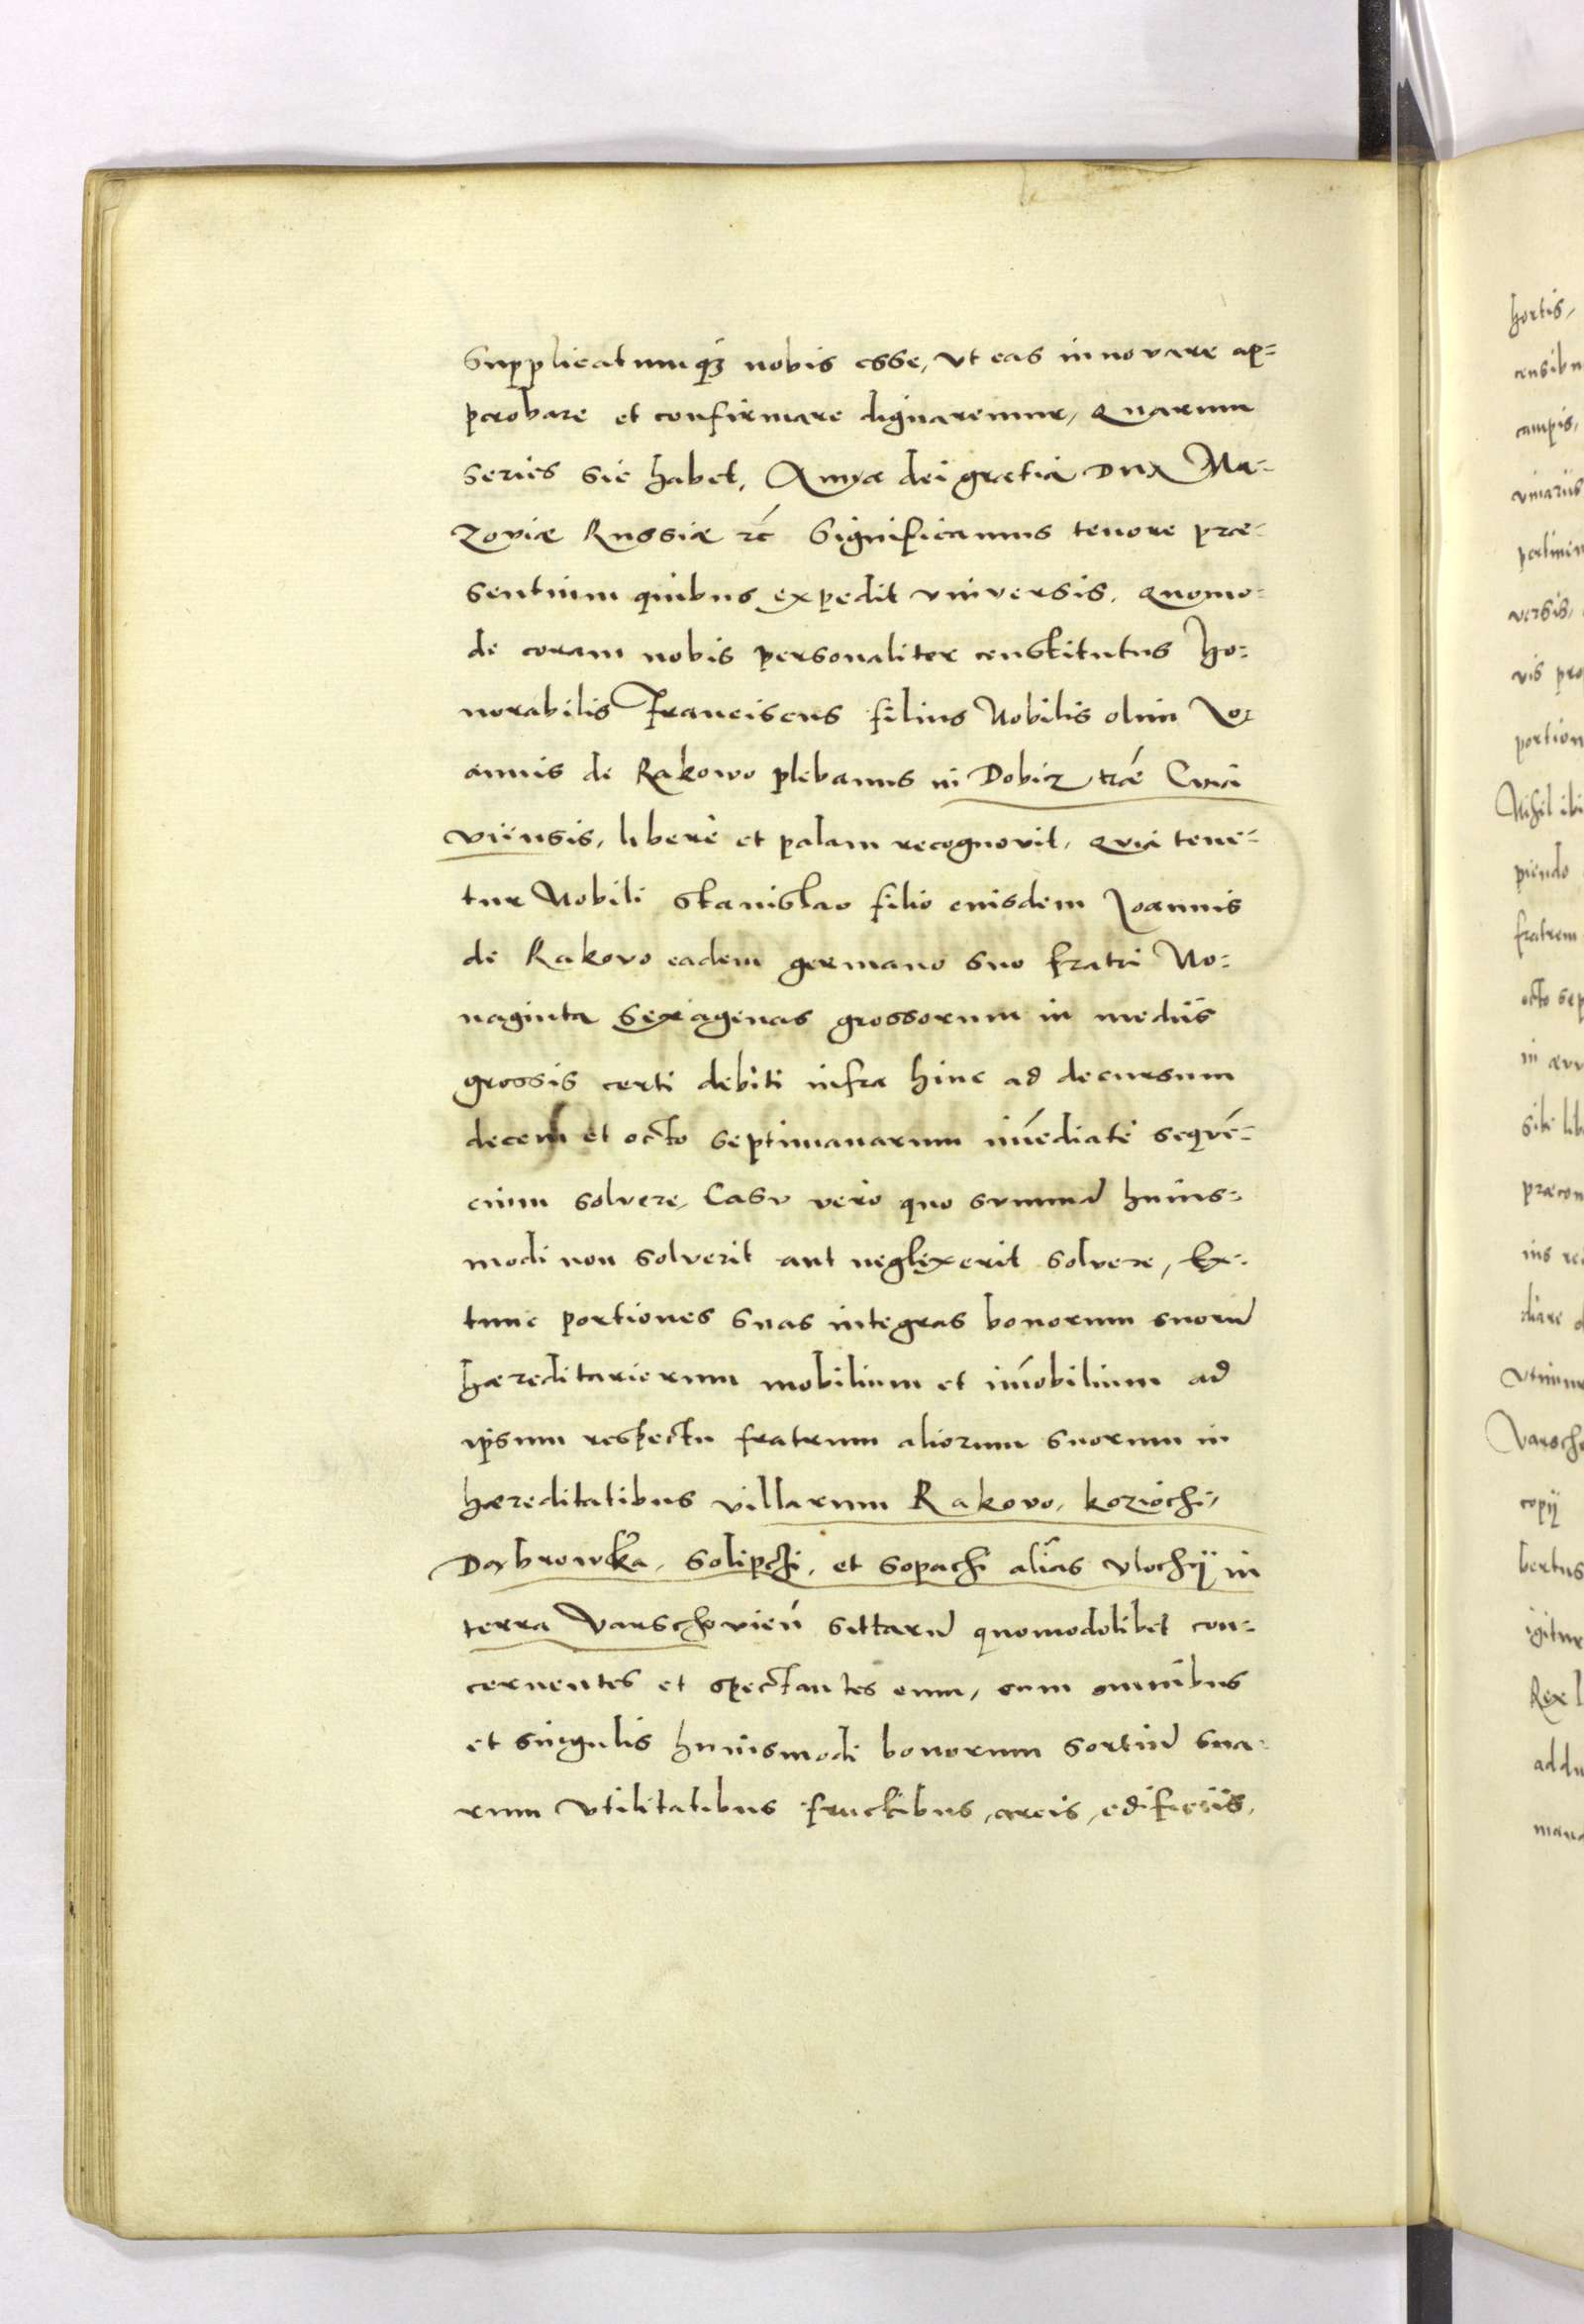 Supplicatumq3 nobis esse, vt eas innovare ap=
probare et confirmare dignaremur, Quarum
series sic habet, Anna dei gratia Dux Ma=
zoviæ Russiæ rc̄ Significamus tenore præ=
sentium quibus expedit vniversis. Quomo=
do coram nobis personaliter constitutus Ho=
norabilis Franciscus filius Nobilis olim Jo=
annis de Rakowo plebanus in trǣ
libere et palam recognovit, Quia tene=
tur Nobili Stanislao filio eiusdem Joannis
de Rakovo eadem germano suo fratri No=
naginta sexagenas grossorum in mediis
grossis certi debiti infra hinc ad decursum
decem et octo septimanarum im̄ediate sequē=
cium solvere, Casu vero quo sum̄ā huius=
modi non solverit aut neglexerit solvere, Ex=
tunc portiones suas integras bonorum suorū
hæreditariorum mobilium et im̄obilium ad
ipsum respectu fratrum aliorum suorum in
hæreditatibus villarum Rakovo, koziochi,
Dabrowka, Solipchi, et Sopachi aliās Vlochij in
terra Varschovień sittarū quomodolibet con=
cernentes et spectantes eum, cum omnibus
et singulis huiusmodi bonorum sortiū sua=
rum vtilitatibus fructibus, areis, edificiis,
hortis,
campis,